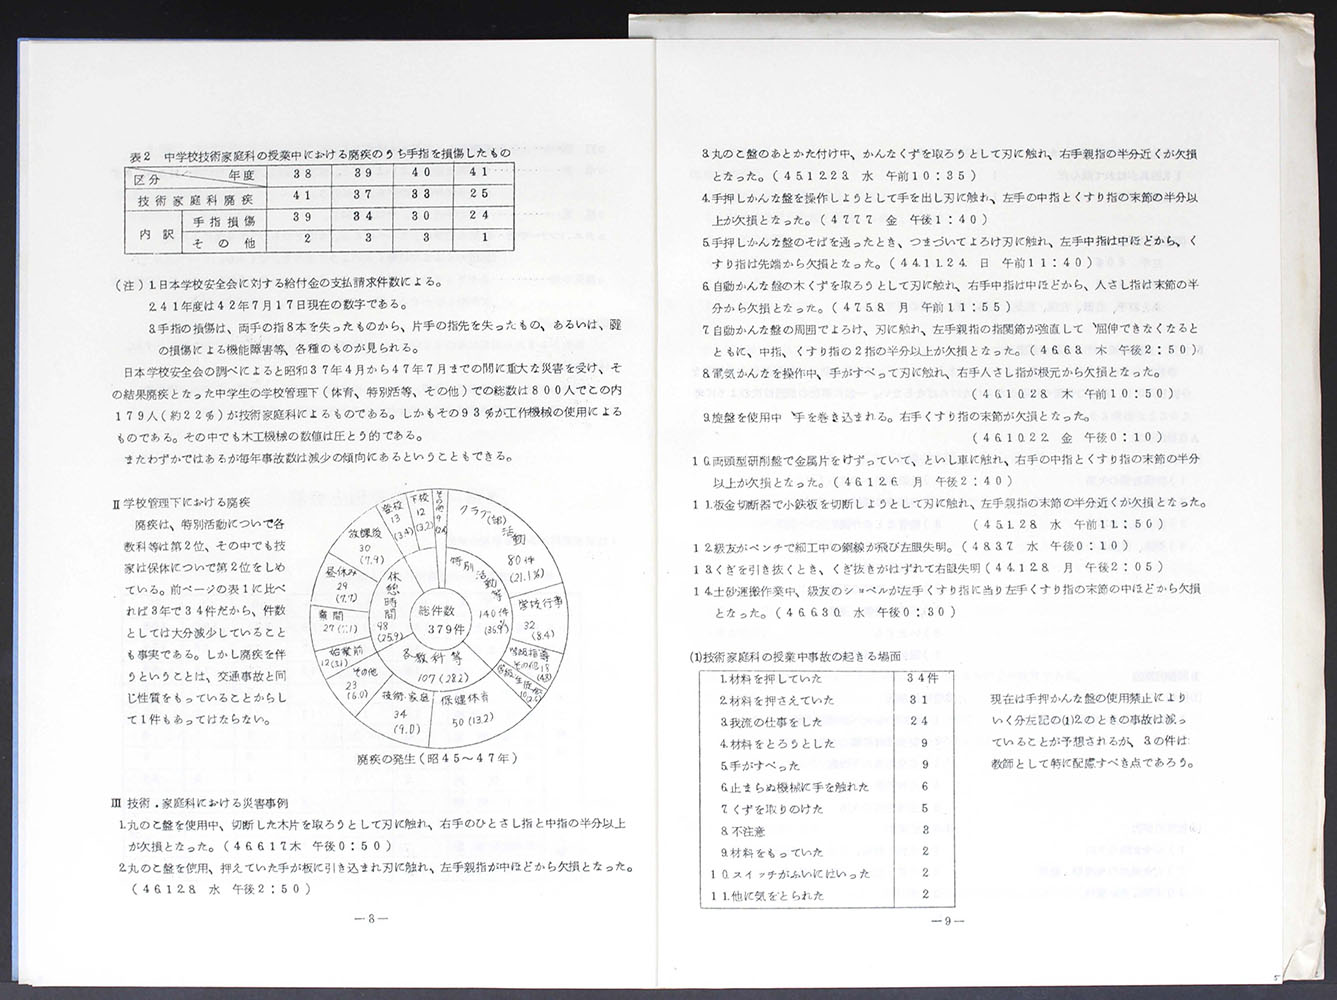 表2　中学校技術家庭科の授業中における廃疾のうち手指を損傷したもの
区分　年度　38　39　40　41
技術家庭科廃疾　41　37　33　25
内訳　手指損傷　39　34　30　24
その他　2　3　3　1
(注) 1.日本学校安全会に対する給付金の支払請求件数による。
2.41年度は42年7月17日現在の数字である。
3.手指の損傷は、両手の指8本を失ったものから、片手の指先を失ったもの、あるいは、腱
の損傷による機能障害等、各種のものが見られる。
日本学校安全会の調べによると昭和37年4月から47年7月までの間に重大な災害を受け、そ
の結果廃疾となった中学生の学校管理下(体育、特別活等、その他)での総数は800人でこの内
179人(約22%)が技術家庭科によるものである。しかもその93%が工作機械の使用による
ものである。その中でも木工機械の数値は圧とう的である。
またわずかではあるが毎年事故数は減少の傾向にあるということもできる。
Ⅱ 学校管理下における廃疾
廃疾は、特別活動について各
教科等は第2位、その中でも技
家は保体について第2位をしめ
ている。前ページの表1に比べ
れば3年で34件だから、件数
としては大分減少していること
も事実である。しかし廃疾を伴
うということは、交通事故と同
じ性質をもっていることからし
て1件もあってはならない。
総件数
379件
特別活動等
140件
クラブ(部)活動
80件
(21.1%)
学校行事
32
(8.4)
各教科等
107(28.2)
保健体育
50(13.2)
技術・家庭
34
(9.0)
その他
23
(6.0)
休憩時間
98
(25.9)
始業前
12(3.1)
業間
昼休み
29
(7.7)
放課後
30
(7.9)
登校
13
(3.4)
下校
12
(3.2)
その他
9
廃疾の発生(昭45～47年)
Ⅲ 技術．家庭科における災害事例
1.丸のこ盤を使用中、切断した木片を取ろうとして刃に触れ、右手のひとさし指と中指の半分以上
が欠損となった。(46.6.17木　午後0:50)
2.丸のこ盤を使用、押えていた手が板に引き込まれ刃に触れ、左手親指が中ほどから欠損となった。
(46.12.8　水　午後2:50)
—8—
3.丸のこ盤のあとかた付け中、かんなくずを取ろうとして刃に触れ、右手親指の半分近くが欠損
となった。(45.12.23　水　午前10:35)
4.手押しかんな盤を操作しようとして手を出し刃に触れ、左手の中指とくすり指の末節の半分以
上が欠損となった。(47.7.7　金　午後1:40)
5.手押しかんな盤のそばを通ったとき、つまづいてよろけ刃に触れ、左手中指は中ほどから、く
すり指は先端から欠損となった。(44.11.24　日　午前11:40)
6.自動かんな盤の木くずを取ろうとして刃に触れ、右手中指は中ほどから、人さし指は末節の半
分から欠損となった。(47.5.8　月　午前11:55)
7.自動かんな盤の周囲でよろけ、刃に触れ、左手親指の指関節が強直して、屈伸できなくなると
ともに、中指、くすり指の2指の半分以上が欠損となった。(46.6.3　木　午後2:50)
8.電気かんなを操作中、手がすべって刃に触れ、右手人さし指が根元から欠損となった。
(46.10.28　木　午前10:50)
9.旋盤を使用中、手を巻き込まれる。右手くすり指の末節が欠損となった。
(46.10.22　金　午後0:10)
10.両頭型研削盤で金属片をけずっていて、といし車に触れ、右手の中指とくすり指の末節の半分
以上が欠損となった。(46.12.6　月　午後2:40)
11.板金切断器で小鉄板を切断しようとして刃に触れ、左手親指の末節の半分近くが欠損となった。
(45.1.28　水　午前11:50)
12.級友がペンチで細工中の鋼線が飛び左眼失明。(48.3.7　水　午後0:10)
13.くぎを引き抜くとき、くぎ抜きがはずれて右眼失明(44.12.8　月　午後2:05)
14.土砂運搬作業中、級友のショベルが左手くすり指に当り左手くすり指の末節の中ほどから欠損
となった。(46.6.30　水　午後0:30)
(1)技術家庭科の授業中事故の起きる場面
1.材料を押していた　34件
2.材料を押さえていた　31
3.我流の仕事をした　24
4.材料をとろうとした　9
5.手がすべった　9
6.止まらぬ機械に手を触れた　6
7.くずを取りのけた　5
8.不注意　3
9.材料をもっていた　2
10.スイッチがふいにはいった　2
11.他に気をとられた　2
現在は手押かんな盤の使用禁止により
いく分左記の(1)2のときの事故は減っ
ていることが予想されるが、3の件は
教師として特に配慮すべき点であろう。
—9—